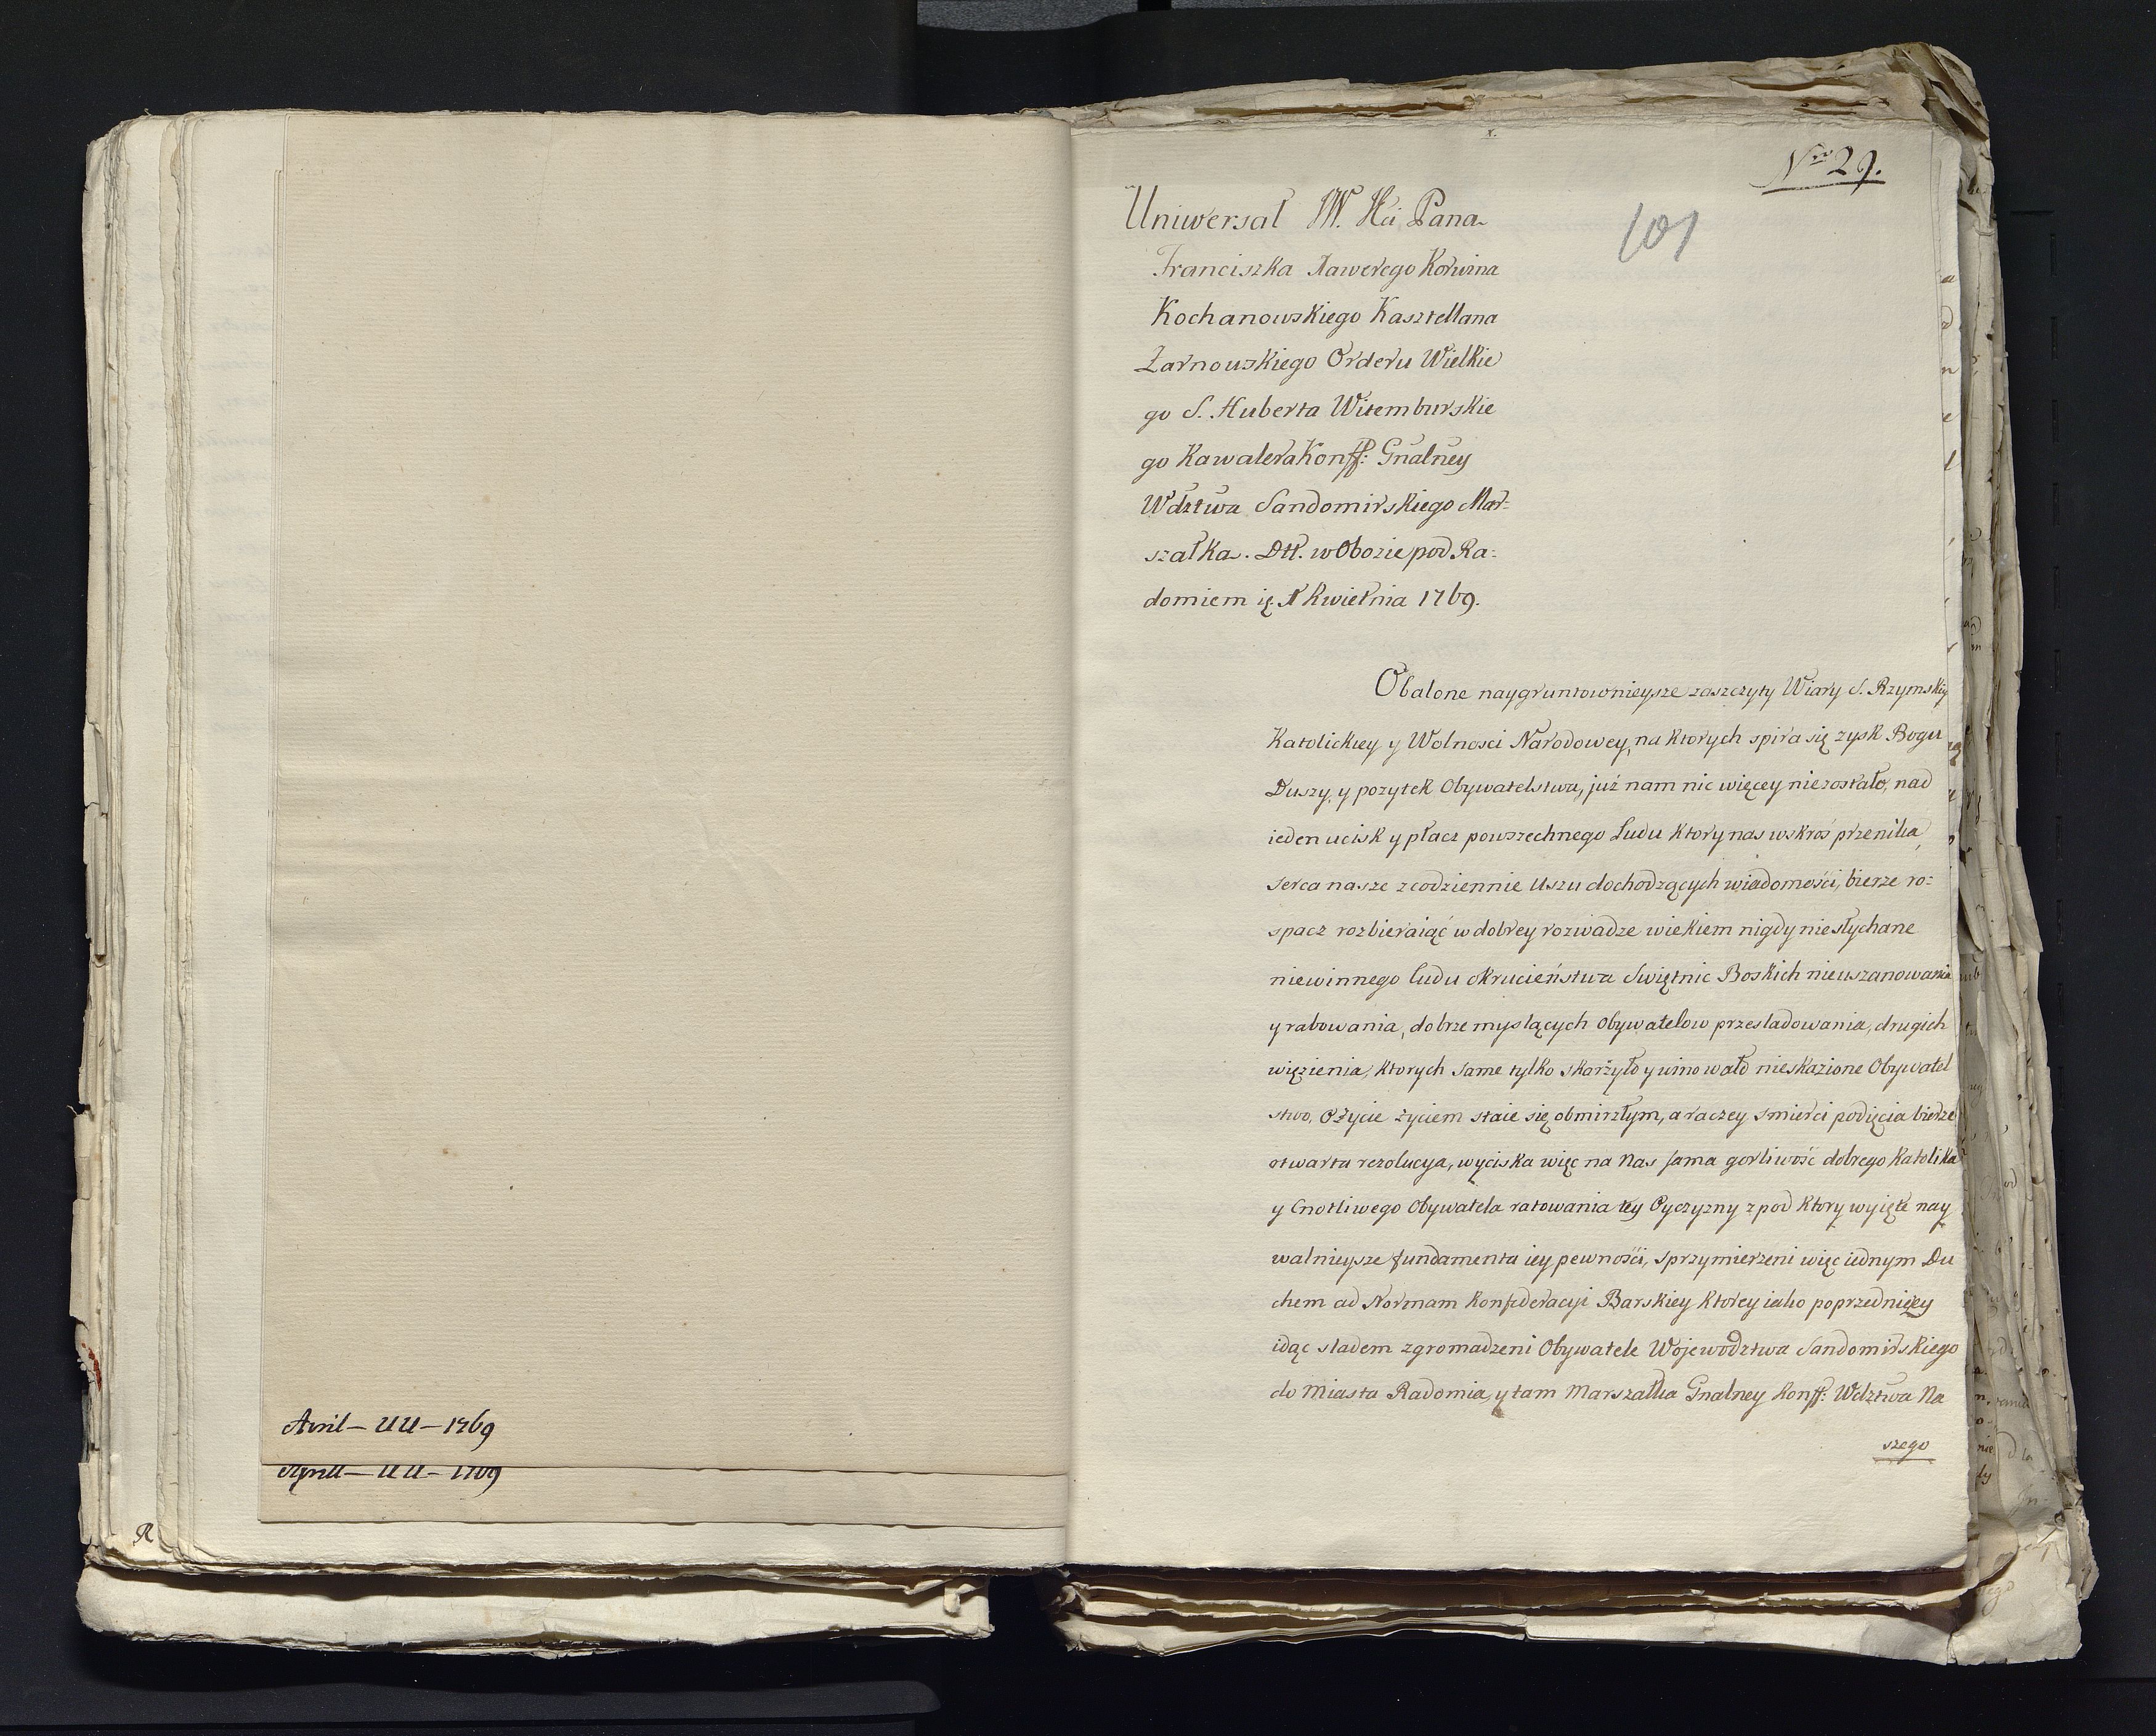 Avril – UU – 1769
Aprill – UU – 1769
R
Nro 29.
101
Uniwersał JW. Pana
Franciszka Xawerego Korwina
Kochanowskiego Kasztellana
Żarnowskiego Orderu Wielkie
go S. Huberta Witemburskie
go Kawalera Konff: Gnalney
Wdztwa Sandomirskiego Mar=
szałka. Dtt. w Obozie pod Ra=
domiem Kwietnia 1769.
Obalone naygruntownieysze zaszczyty Wiary S. Rzymskiy
Katolickiey y Wolnosci Narodowey, na ktorych spira się zysk Bogu
Duszy, y pozytek Obywatelstwa, już nam nic więcey niezostało, nad
ieden ucisk y płacz powszechnego Ludu ktory nas wskroś przenika,
serca nasze zcodziennie uszu dochodzących wiadomości, bierze ro=
spacz rozbieraiąć w dobrey rozwadze wiekiem nigdy niesłychane
niewinnego ludu okrucieństwa Swiętnic Boskich nieuszanowania
y rabowania, dobrze myslących Obywatelow przesladowania, drugich
więzienia, ktorych same tylko skarżyło y winowało nieskazione Obywatel
stwo, Ożycie życiem staie się obmirzłym, a raczey smierci podięcia bierze
otwarta rezolucya, wyciska więc na Nas sama gorliwość dobrego Katolika
y Cnotliwego Obywatela ratowania tey Oyczyzny z pod ktory wyięte nay
walnieysze fundamenta iey pewności, sprzymierzeni więc iednym Du
chem ad Normam Konfederacyi Barskiey ktorey iako poprzedniczey
idąc sladem zgromadzeni Obywatele Wojewodztwa Sandomirskiego
do Miasta Radomia, y tam Marszałka Gnalney Konff: Wdztwa Na
szego